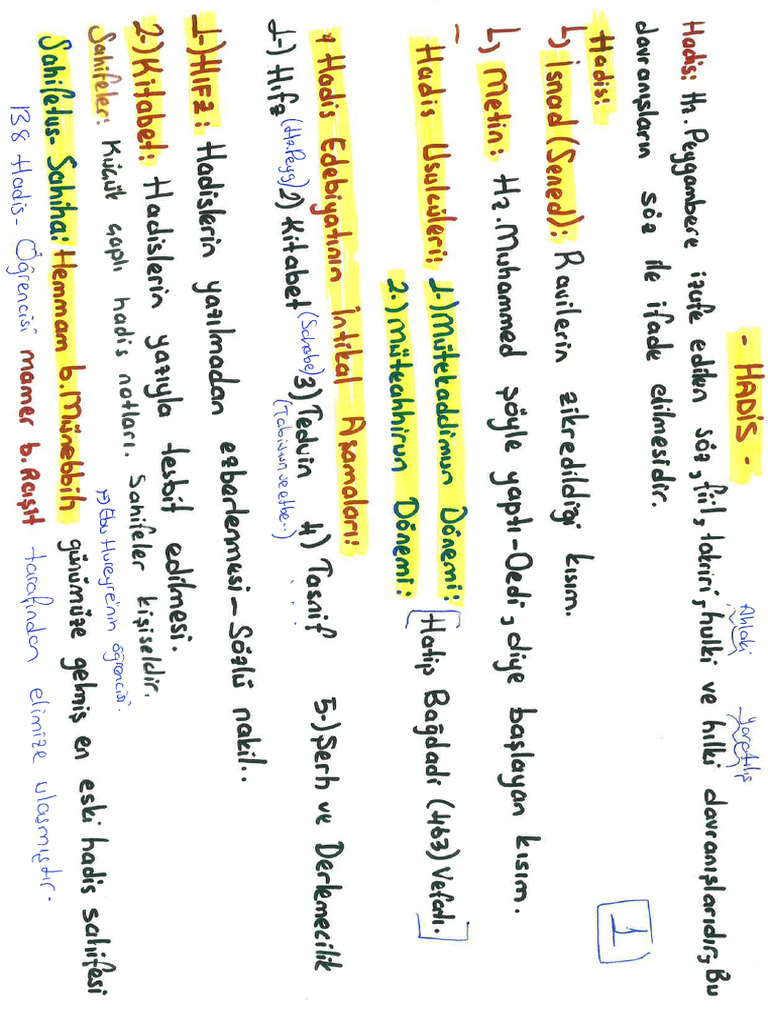 - HADİS -
Ahlaki
yaratılış
Hadis: Hz. Peygambere izafe edilen söz, fiil, takriri, hulki ve hilki davranışlarıdır, Bu
davranışların söz ile ifade edilmesidir.
1
Hadis:
↳ İsnad (Sened): Ravilerin zikredildiği kısım.
↳ Metin: Hz. Muhammed şöyle yaptı-Dedi, diye başlayan kısım.
Hadis Usulcüleri: 1-) Mütekaddimun Dönemi: [Hatip Bağdadi (463) Vefatlı.]
2.) Müteahhirun Dönemi:
* Hadis Edebiyatının İntikal Aşamaları:
1-) Hıfz (Hz.Peyg) 2) Kitabet (Sahabe) 3) Tedvin 4) Tasnif 5-) Şerh ve Derlemecilik
(Tabiun ve etbe..)
1-) HIFZ: Hadislerin yazılmadan ezberlenmesi - Sözlü nakil..
2-) Kitabet: Hadislerin yazıyla tesbit edilmesi.
Sahifeler: Küçük çaplı hadis notları. Sahifeler kişiseldir.
Ebu Hureyre'nin öğrencisi.
Sahifetus-Sahiha: Hemmam b. Münebbih günümüze gelmiş en eski hadis sahifesi
138 Hadis - Öğrencisi mamer b. Raşit tarafından elimize ulaşmıştır.